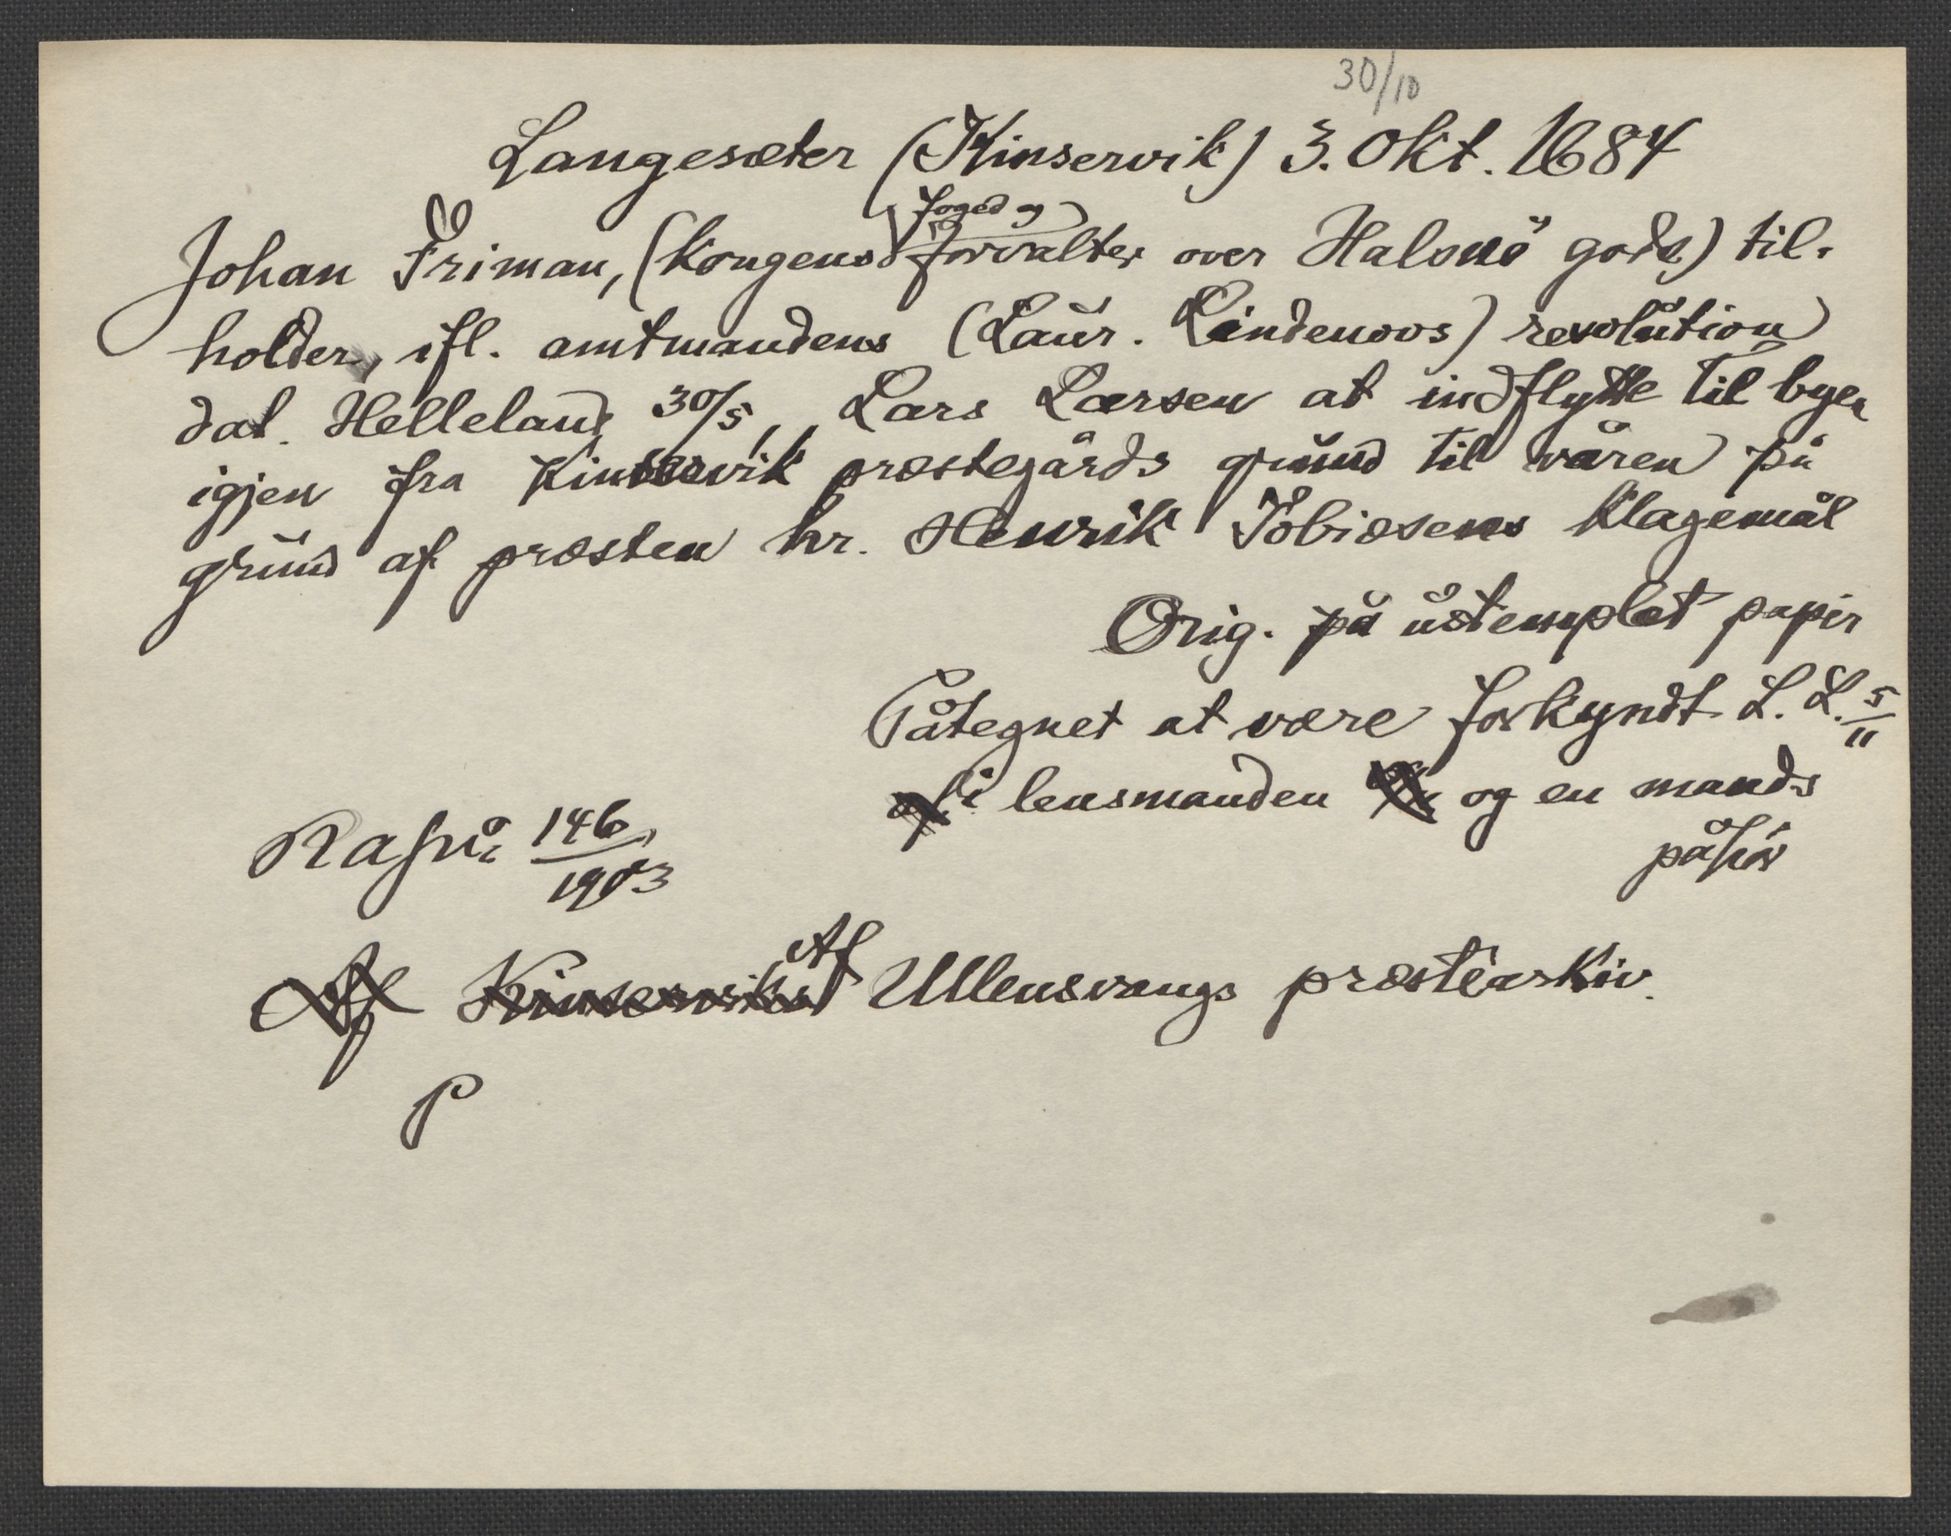 30/10
Langesæter (Kinservik) 3. Okt. 1684
foged og
Johan Friman, (Kongens forvalter over Halsnö gods) til-
holder, ifl. amtmandens (Laur. Lindenovs) resolution
dat. Helleland 30/5, Lars Larsen at indflytte til byen
igjen fra Kinservik præstegårds grund til våren på
grund af præsten hr. Henrik Tobiasens klagemål
Orig. på ustemplet papir
Påtegnet at være forkyndt L. L. 5/11
i lensmanden og en mands
påhör
146/1903
Af
Ullensvangs præstearkiv.
P